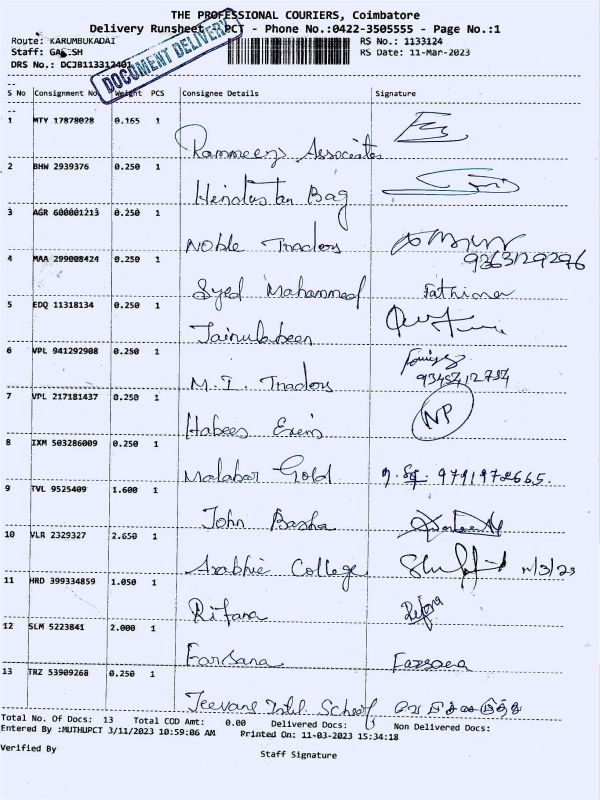 THE PROFESSIONAL COURIERS, Coimbatore
Delivery Runsheet PCT - Phone No.:0422-3505555 - Page No.:1
Route: KARUMBUKADAI RS No.: 1133124
Staff: GANESH RS Date: 11-Mar-2023
DRS No.: DCJB113312401
DOCUMENT DELIVERY
S No Consignment No Weight PCS Consignee Details Signature
1 MTY 17878028 0.165 1
Rammeez Associates
2 BHW 2939376 0.250 1
Hindustan Bag
3 AGR 600001213 0.250 1
Noble Traders
9363129296
4 MAA 299008424 0.250 1
Syed Mohammed Fathima
5 EDQ 11318134 0.250 1
Jainulabeen
6 VPL 941292908 0.250 1
M.I. Traders
7 VPL 217181437 0.250 1
Habees NP
8 IXM 503286009 0.250 1
Malabar Gold 9791972665.
9 TVL 9525409 1.600 1
John Basha
10 VLR 2329327 2.650 1
Arabhic College 11/3/23
11 HRD 399334859 1.050 1
Rifana Rifana
12 SLM 5223841 2.000 1
Farsana Farsana
13 TRZ 53909268 0.250 1
Jeevans Intl. School
Total No. Of Docs: 13 Total COD Amt: 0.00 Delivered Docs: Non Delivered Docs:
Entered By :MUTHUPCT 3/11/2023 10:59:06 AM Printed On: 11-03-2023 15:34:18
Verified By
Staff Signature